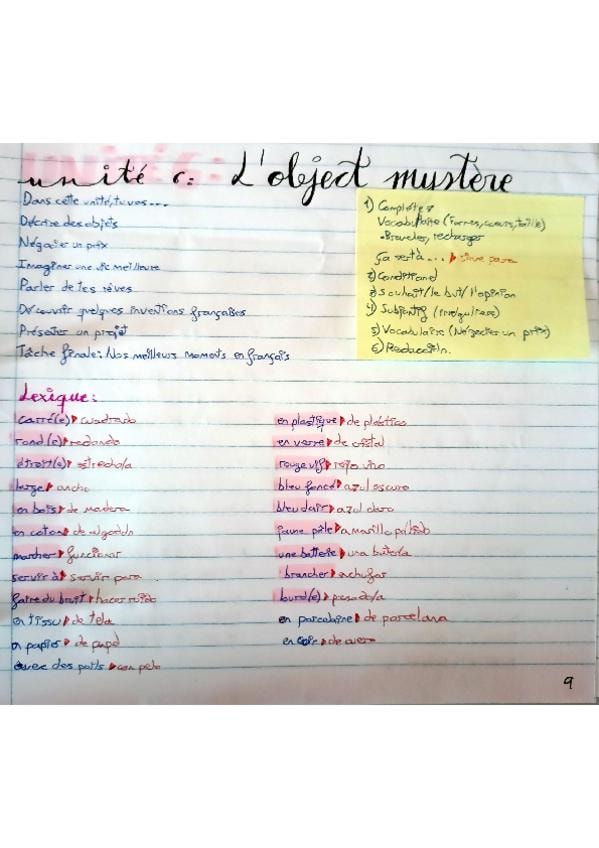 unité 6: L'object mystère
Dans cette unité, tu vas...
Décrire des objets
Négocier un prix
Imaginer une vie meilleure
Parler de tes rêves
Découvrir quelques inventions françaises
Présenter un projet
Tâche finale: Nos meilleurs moments en français
1) Complète
Vocabulaire (Formes, couleurs, taille)
recharger
Ça sert à... sirve para
2) Conditionel
3) Souhait/le but/l'opinion
4) Subjontif (irréguliers)
5) Vocabulaire (Négocier un prix)
6) Redacción.
Lexique:
carré(e) cuadrado
rond(e) redondo
étroit(e) estrecho/a
large ancho
en bois de madera
en coton de algodón
marcher funcionar
servir à servir para
faire du bruit hacer ruido
en tissu de tela
en papier de papel
avec des poils con pelo
en plastique de plástico
en verre de cristal
rouge vif rojo vivo
bleu foncé azul oscuro
bleu clair azul claro
jaune pâle amarillo pálido
une batterie una batería
brancher enchufar
lourd(e) pesado/a
en porcelaine de porcelana
en cuir de cuero
9